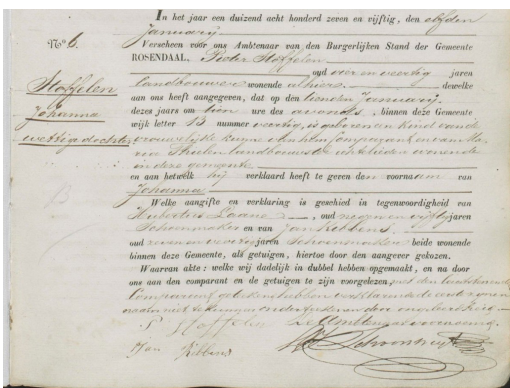 In het jaar een duizend acht honderd zeven en vijftig, den elfden
Januarij
N.º 6.
Verscheen voor ons Ambtenaar van den Burgerlijken Stand der Gemeente
ROSENDAAL, Pieter Stoffelen
oud en veertig jaren
Stoffelen
landbouwer wonende alhier dewelke
Johanna
aan ons heeft aangegeven, dat op den tienden Januarij
wettige dochter
dezes jaars om tien ure des avonds, binnen deze Gemeente
wijk letter B nummer veertig, is geboren een Kind van de
vrouwelijke kunne van hem Comparant en van Ma
ria landbouwster wonende
in deze gemeente
en aan hetwelk hij verklaard heeft te geven den voornaam van
Johanna
Welke aangifte en verklaring is geschied in tegenwoordigheid van
Hubertus Laane, oud negen en vijftig jaren
Schoenmaker en van Jan Kibbens
oud zeven en veertig jaren Schoenmaker beide wonende
binnen deze Gemeente, als getuigen, hiertoe door den aangever gekozen.
Waarvan akte: welke wij dadelijk in dubbel hebben opgemaakt, en na door
ons aan den comparant en de getuigen te zijn voorgelezen, met den
Comparant geteekend hebben verklarende de
naam niet te kunnen
P Stoffelen De Ambtenaar voornoemd
Jan Kibbens